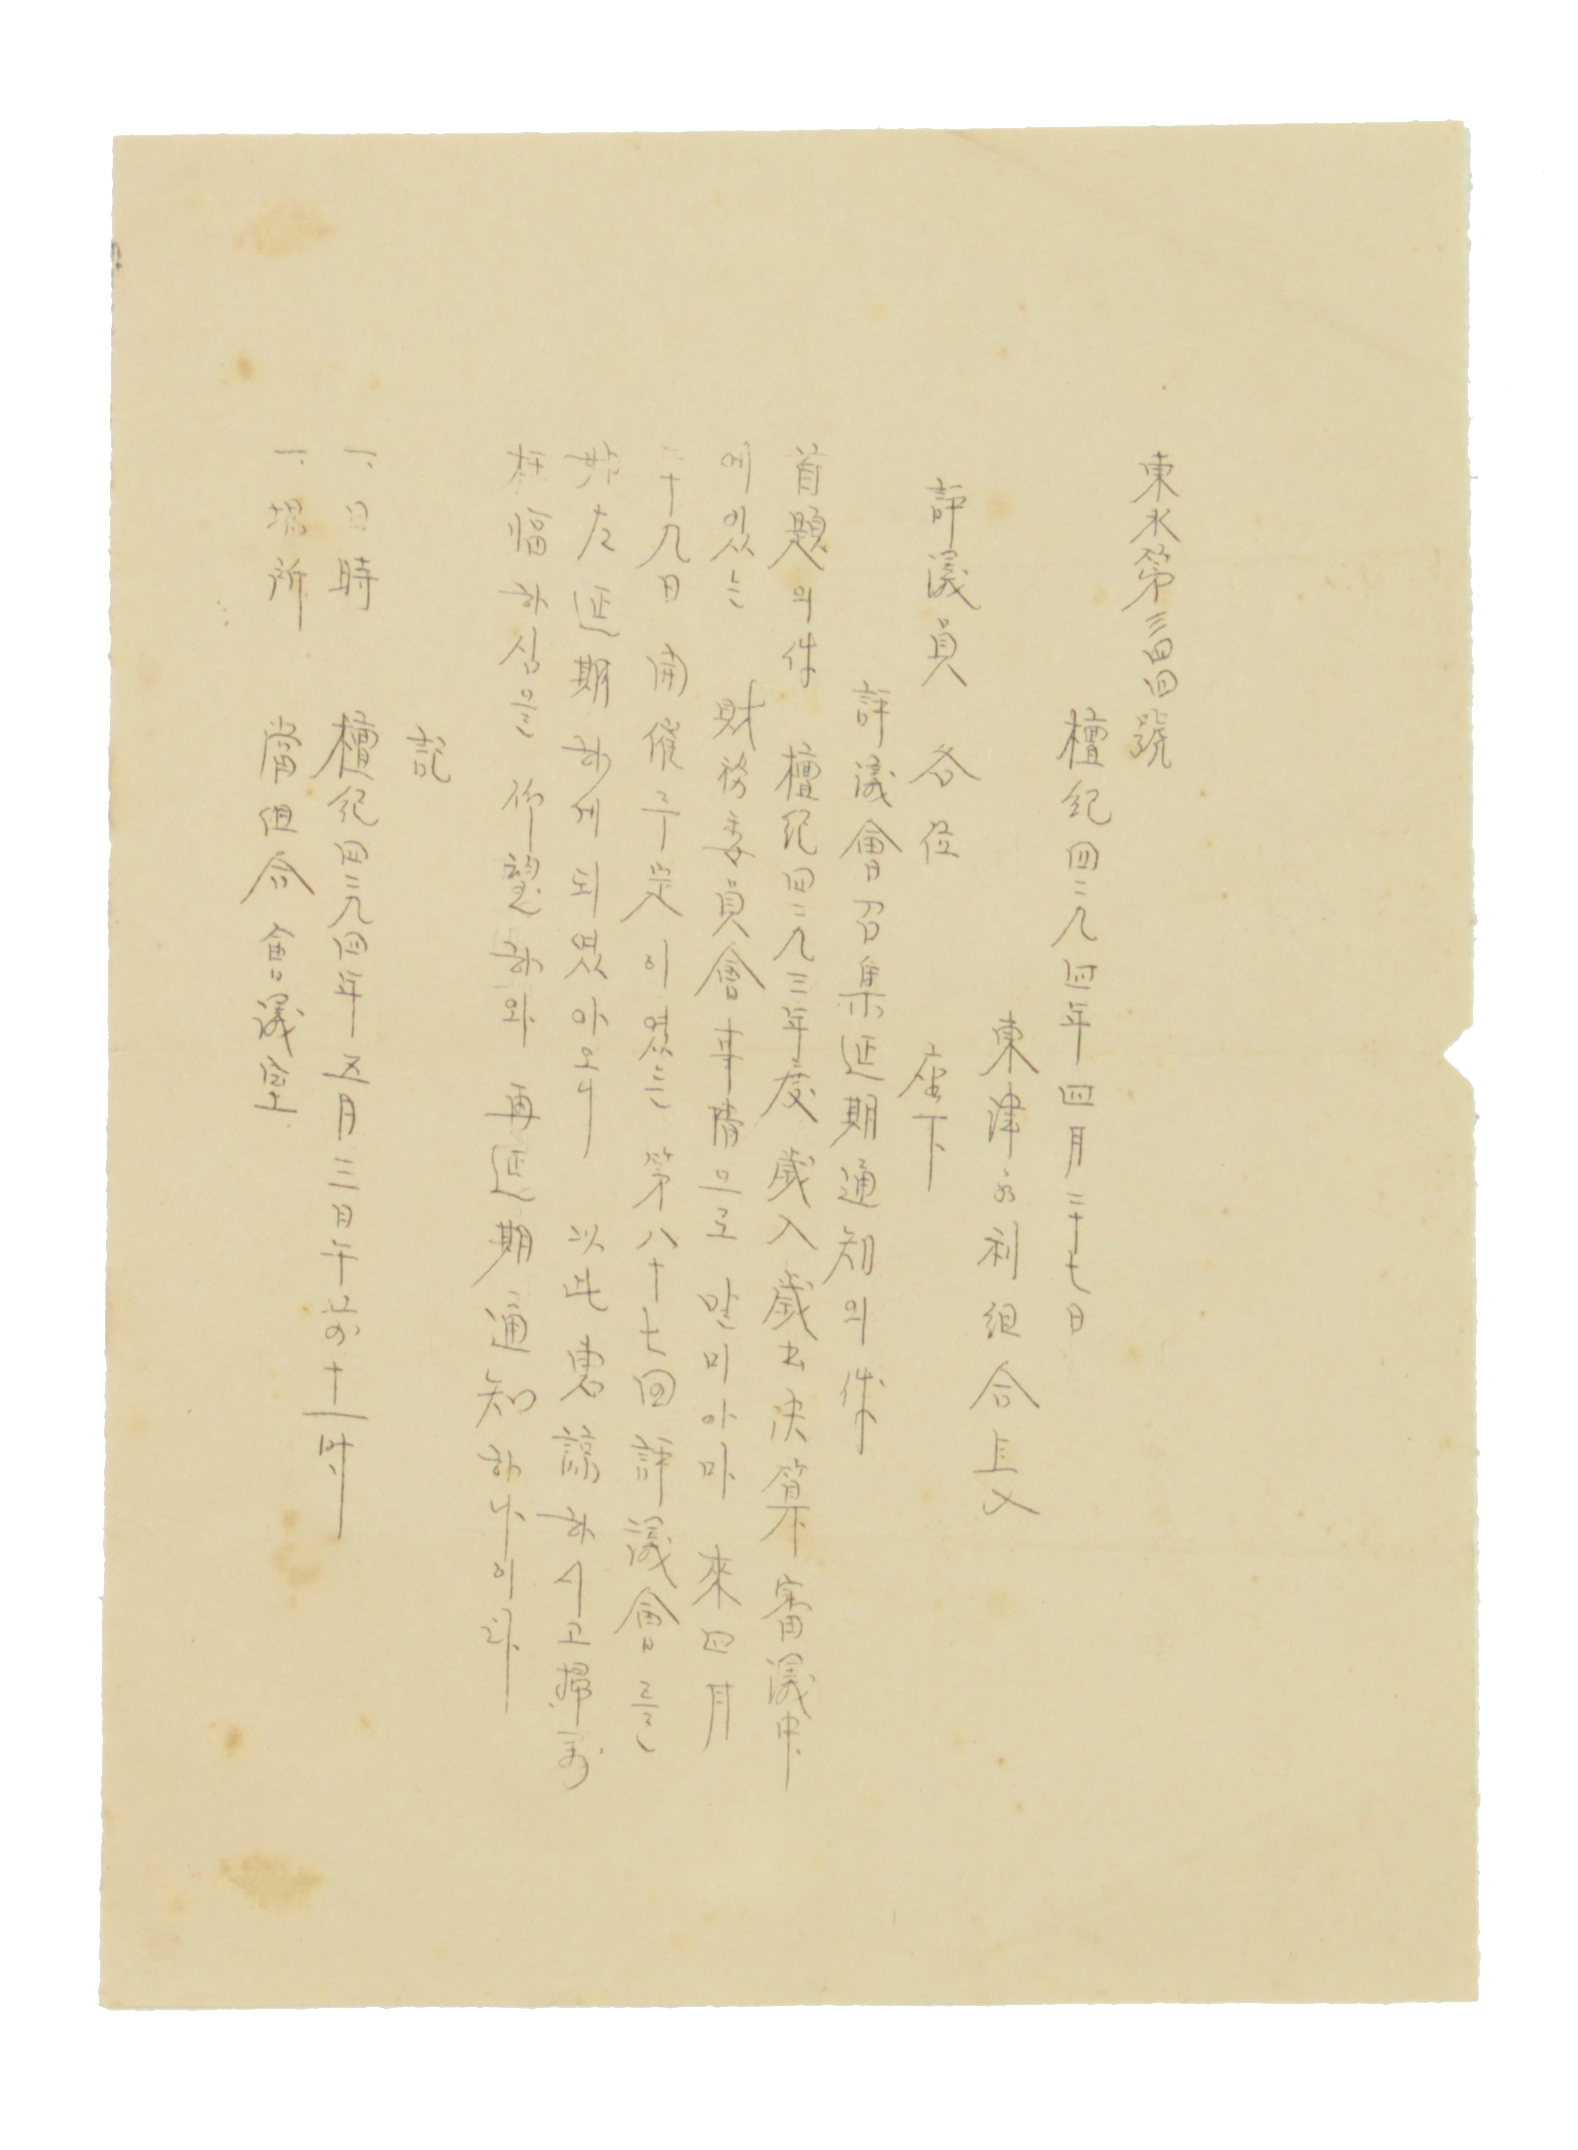 東水第三四四號
檀紀四二九四年四月二十七日
東津水利組合長
評議員 各位 座下
評議會召集延期通知의件
首題의件 檀紀四二九三年度 歲入歲出決算審議中
에있는 財務委員會事情으로 말미아마 來四月
二十九日 開催豫定이였든 第八十七回評議會를
左延期하게되였아오니 以此惠諒하시고掃萬
枉臨하심을 仰望하와 再延期通知하나이다
記
一、日時 檀紀四二九四年五月三日午前十一時
一、場所 當組合會議室